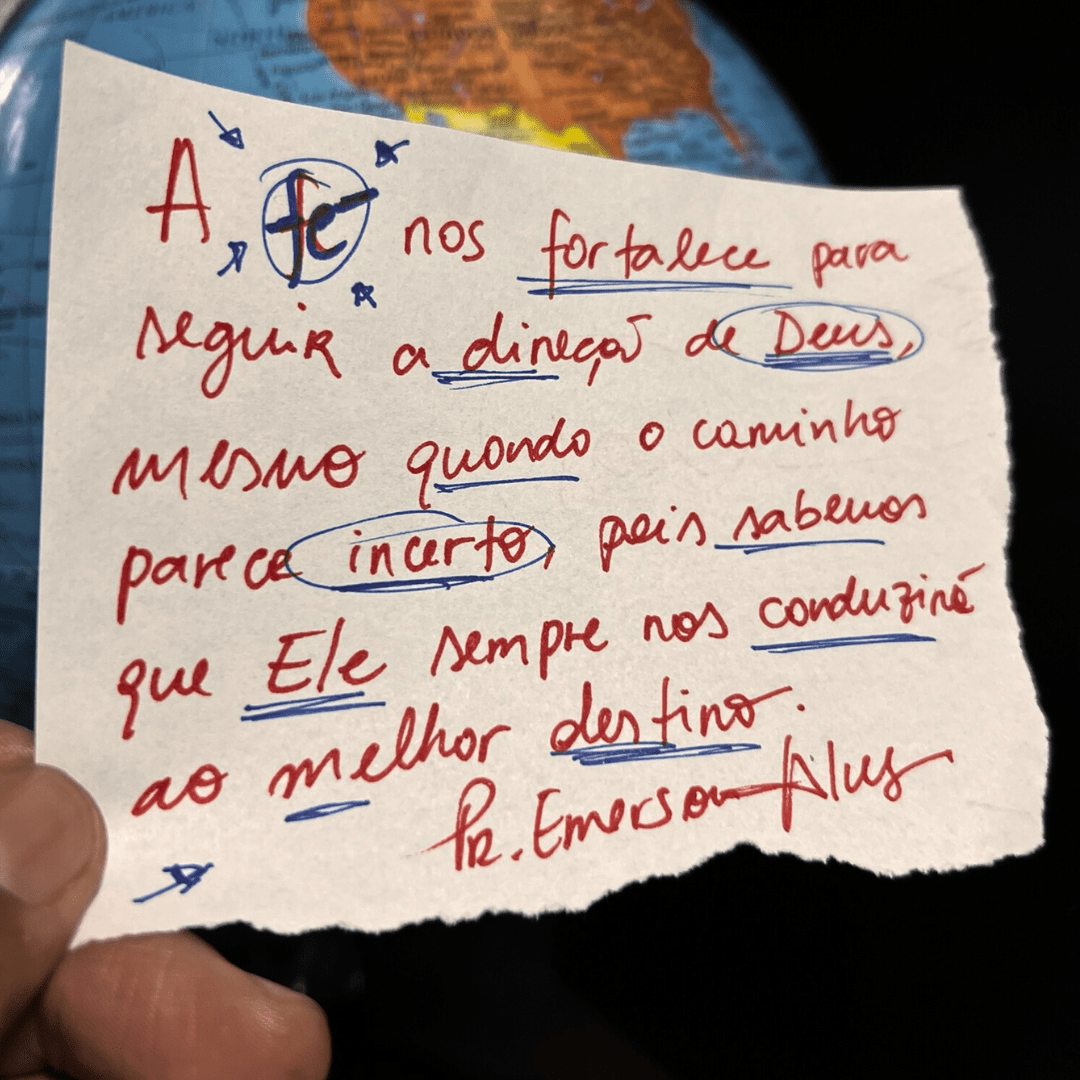 A fé nos fortalece para
seguir a direção de Deus,
mesmo quando o caminho
parece incerto, pois sabemos
que Ele sempre nos conduzirá
ao melhor destino.
Pr. Emerson Alves